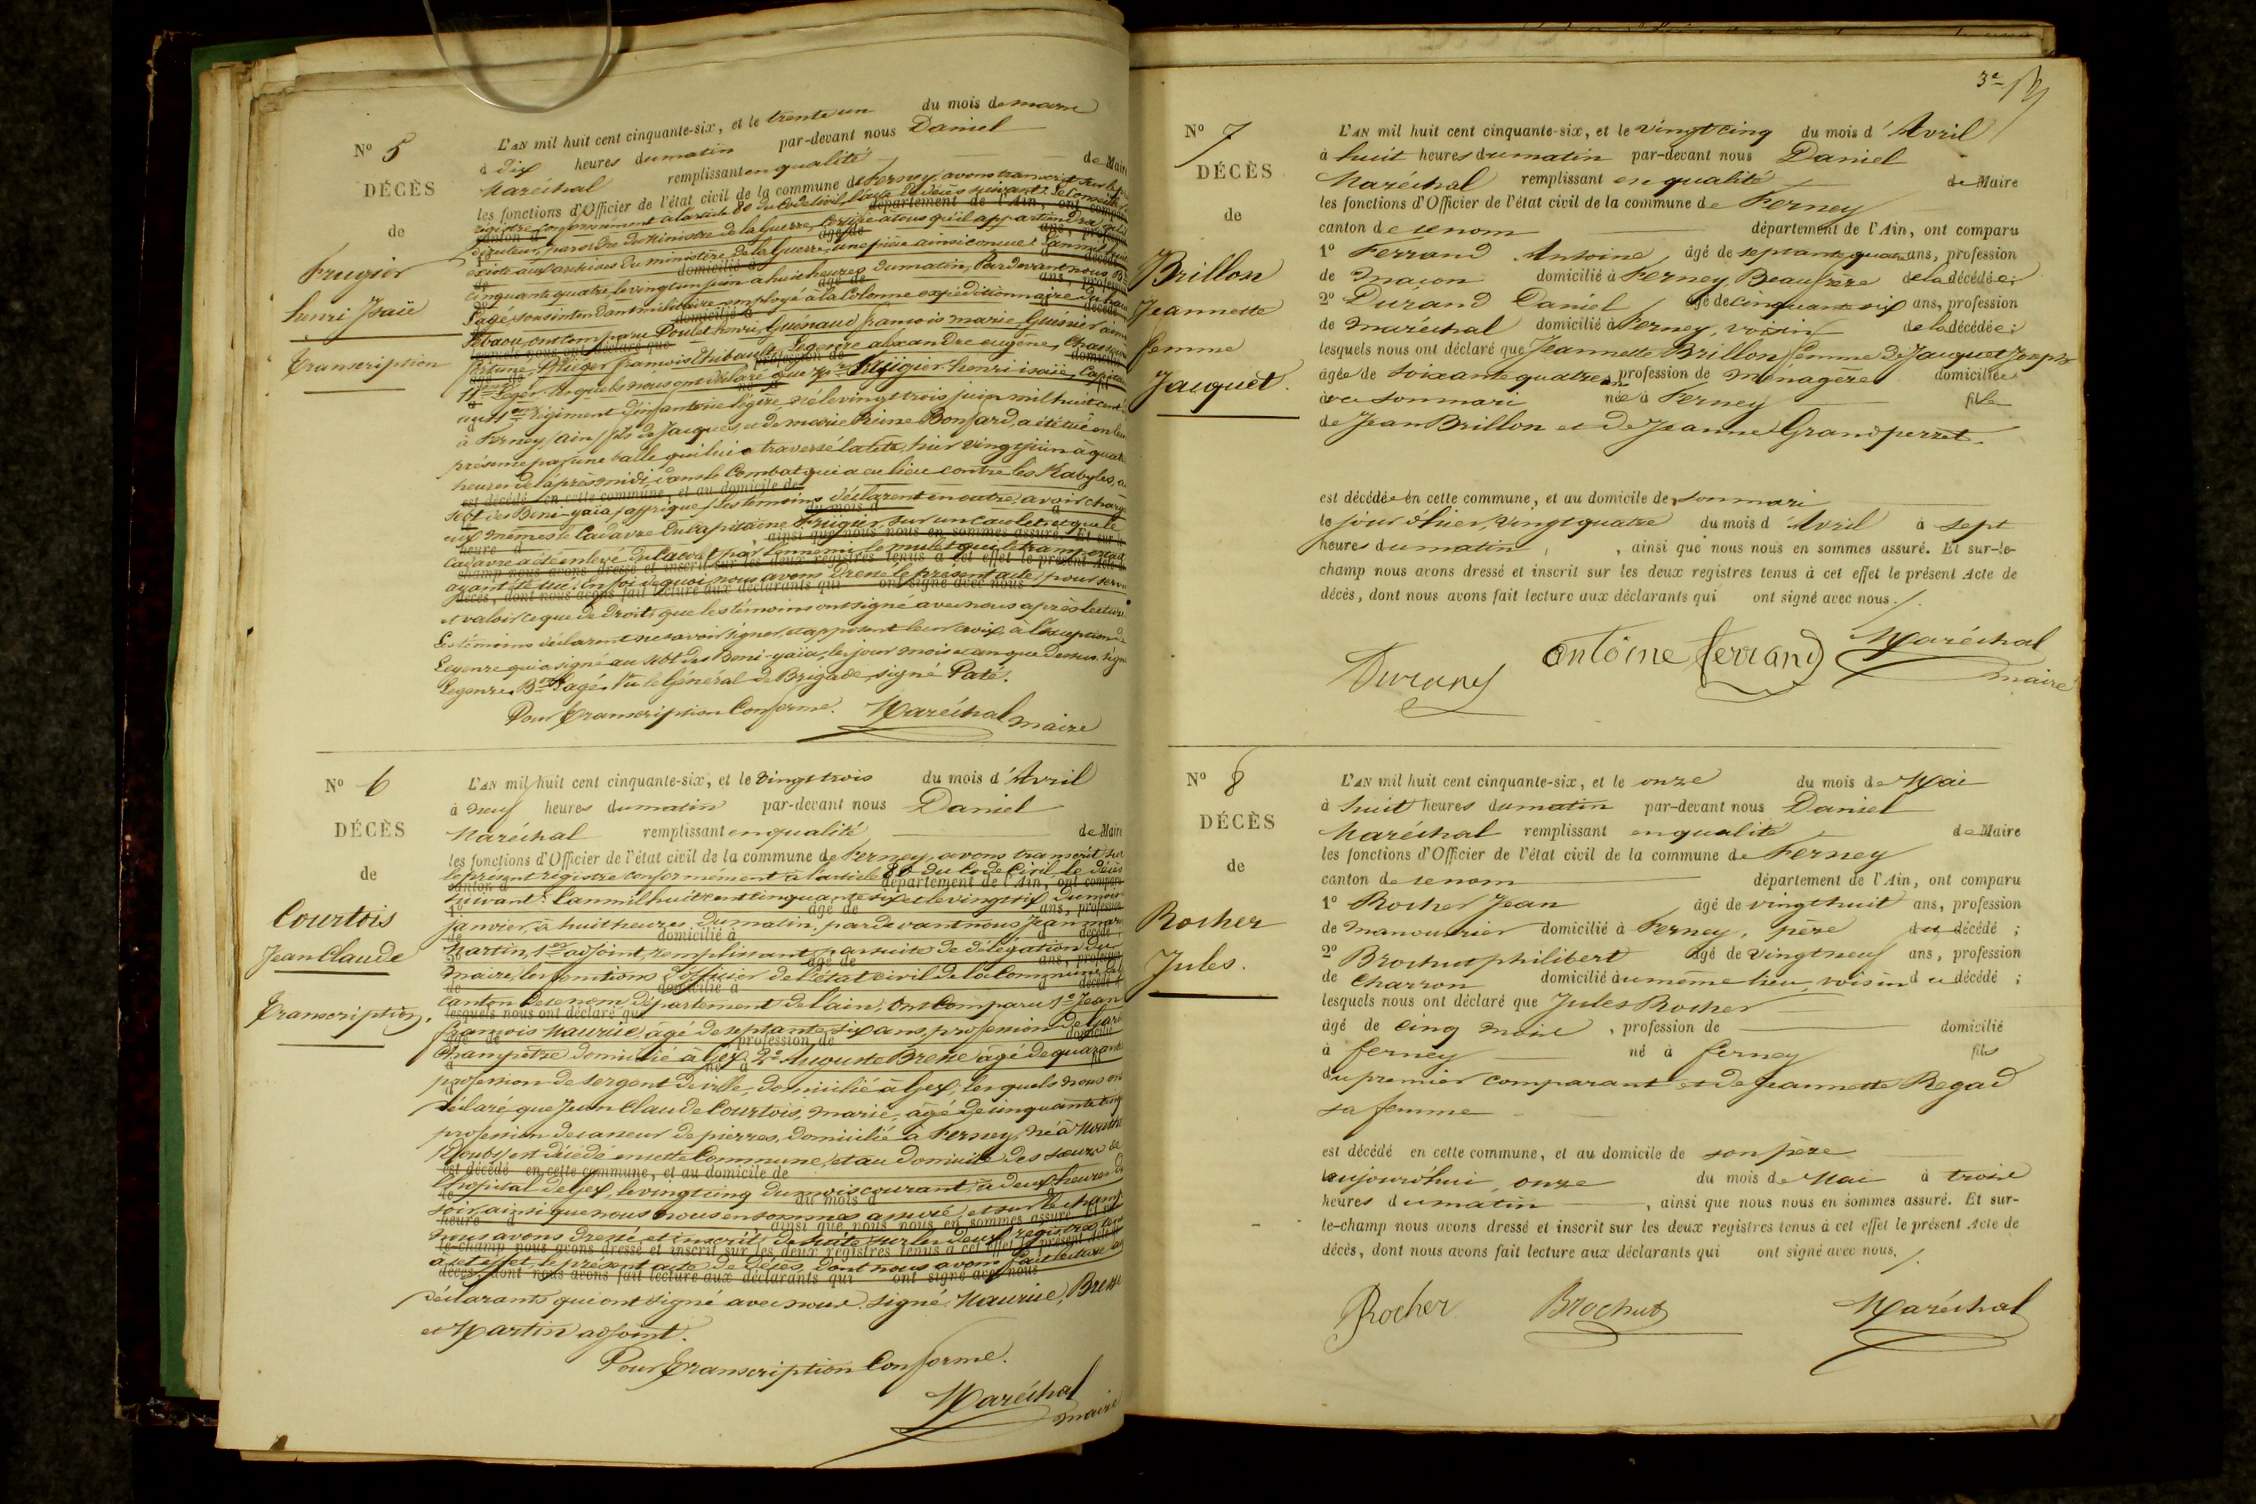 N° 5
DÉCÈS
de
Frugier
henri Isaïe
Transcription
L'AN mil huit cent cinquante-six, et le trente un du mois de mars
à dix heures du matin par-devant nous Daniel
Maréchal remplissant en qualité de Maire
les fonctions d'Officier de l'état civil de la commune de Ferney, avons transcrit sur le
registre conformément à l'article 80 du Code Civil, l'acte de décès suivant:
canton d département de l'Ain, ont comparu
par ordre du Ministre de la Guerre, certifie à tous qu'il appartiendra
existe aux archives du ministère de la Guerre, une pièce ainsi conçue: L'an mil huit
cinquante quatre, le vingt un juin à huit heures du matin, Par devant nous
Pagé, sous intendant militaire employé à la Colonne expéditionnaire du haut
Sebaou, ont comparu Poulet henri, Guénaud françois marie,
françois Thibault, Legenre alexandre eugène,
lesquels nous ont déclaré que Mr Frugier henri isaïe, Capitaine
au 11me Régiment d'infanterie légère, né le vingt trois juin mil huit cent
à Ferney, (ain) fils de Jacques, et de marie Reine Bonfard, a été tué en leur
présence par une balle qui lui a traversé la tête, hier vingt juin à quatre
heures de l'après midi, dans le Combat qui a eu lieu contre les Kabyles, au
est décédé en cette commune, et au domicile de
Sebt des Beni-yaïa, (affrique) Les témoins déclarent en outre, avoir chargé
eux mêmes le Cadavre du Capitaine Frugier sur un cacolet, et que le
cadavre a été enlevé du Cacolet par l'ennemi, le mulet qui le transportait
ayant été tué. En foi de quoi nous avons dressé le présent acte, pour servir
et valoir ce que de droit, que les témoins ont signé avec nous après lecture
Les témoins déclarent ne savoir signer, et apposent leur croix, à l'exception de
Legenre qui a signé au Sebt des Beni-yaïa, les jour mois et an que dessus. Signé
Legenre, Bon Pagé. Vu le Général de Brigade, signé Paté.
Pour Transcription Conforme. Maréchal maire
N° 6
DÉCÈS
de
Courtois
Jean Claude
Transcription.
L'AN mil huit cent cinquante-six, et le vingt trois du mois d'Avril
à neuf heures du matin par-devant nous Daniel
Maréchal remplissant en qualité de Maire
les fonctions d'Officier de l'état civil de la commune de Ferney, avons transcrit sur
le présent registre conformément à l'article 80 du Code Civil, le décès
canton d département de l'Ain, ont comparu
suivant: L'an mil huit cent cinquante six et le vingt six du mois
janvier, à huit heures du matin, par devant nous Jean marc
Martin, 1er adjoint, remplissant par suite de délégation du
maire, les fonctions d'officier de l'état civil de la Commune de
canton de ce nom, département de l'ain, Ont Comparu 1° Jean
lesquels nous ont déclaré que
françois Maurice, âgé de septante six ans, profession de Garde
Champêtre domicilié à Gex, 2° Auguste Bresse âgé de quarante
profession de sergent de ville, domicilié à Gex, lesquels nous ont
déclaré que Jean Claude Courtois, marié, âgé de cinquante cinq
profession de casseur de pierres, domicilié à Ferney, né à Mouthe
(Doubs) est décédé en cette Commune, et au domicile des soeurs de
est décédé en cette commune, et au domicile de
l'hôpital de Gex, le vingt cinq du mois courant, à deux heures du
soir, ainsi que nous nous en sommes assuré, et sur le champ
nous avons dressé et inscrit de suite sur les deux registres tenus
le-champ nous avons dressé et inscrit sur les deux registres tenus à cet effet le présent Acte de
à cet effet, le présent acte de décès, dont nous avons fait lecture aux
décès, dont nous avons fait lecture aux déclarants qui ont signé avec nous
déclarants qui ont signé avec nous, signé, Maurice, Bresse
et Martin adjoint.
Pour Transcription Conforme.
Maréchal
maire
3e
N° 7
DÉCÈS
de
Brillon
Jeannette
femme
Jacquet.
L'AN mil huit cent cinquante-six, et le vingt cinq du mois d'Avril
à huit heures du matin par-devant nous Daniel
Maréchal remplissant en qualité de Maire
les fonctions d'Officier de l'état civil de la commune de Ferney
canton de ce nom département de l'Ain, ont comparu
1° Ferrand Antoine, âgé de septante quatre ans, profession
de maçon domicilié à Ferney, Beaufrère de la décédée;
2° Durand Daniel âgé de cinquante six ans, profession
de maréchal domicilié à Ferney, voisin de la décédée;
lesquels nous ont déclaré que Jeannette Brillon femme de Jacquet Joseph
âgée de soixante quatre ans profession de ménagère domiciliée
avec son mari née à Ferney fille
de Jean Brillon et de Jeanne Grandperret.
est décédée en cette commune, et au domicile de son mari
le jour d'hier, vingt quatre du mois d'Avril à sept
heures du matin, ainsi que nous nous en sommes assuré. Et sur-le-
champ nous avons dressé et inscrit sur les deux registres tenus à cet effet le présent Acte de
décès, dont nous avons fait lecture aux déclarants qui ont signé avec nous.
Durand antoine ferrand Maréchal
maire
N° 8
DÉCÈS
de
Rocher
Jules.
L'AN mil huit cent cinquante-six, et le onze du mois de Mai
à huit heures du matin par-devant nous Daniel
Maréchal remplissant en qualité de Maire
les fonctions d'Officier de l'état civil de la commune de Ferney
canton de ce nom département de l'Ain, ont comparu
1° Rocher Jean âgé de vingt huit ans, profession
de manouvrier domicilié à Ferney, père du décédé;
2° Brochut philibert âgé de vingt neuf ans, profession
de charron domicilié au même lieu, voisin du décédé;
lesquels nous ont déclaré que Jules Rocher
âgé de cinq mois, profession de domicilié
à ferney né à ferney fils
du premier comparant et de Jeannette Regad
sa femme
est décédé en cette commune, et au domicile de son père
aujourd'hui onze du mois de Mai à trois
heures du matin, ainsi que nous nous en sommes assuré. Et sur-
le-champ nous avons dressé et inscrit sur les deux registres tenus à cet effet le présent Acte de
décès, dont nous avons fait lecture aux déclarants qui ont signé avec nous.
Rocher Brochut Maréchal